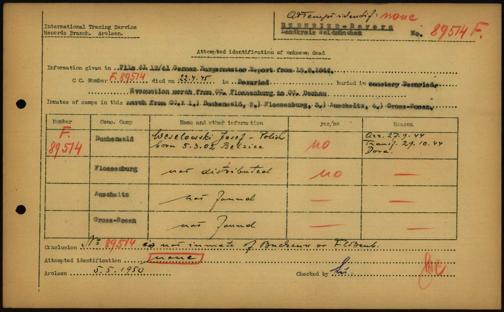 International Tracing Service
Records Branch. Arolsen.
Attempt identif: none
No. 89514 F.
Attempted identification of unknown dead
Information given in File 61 12/61 German Burgermaster Report from
C C Number F. 89514 died on 22.4.45 in buried in cemetery
Evacuation march from CC. Flossenburg to CC. Dachau
Inmates of camps in this march from CC. 1.) Buchenwald, 2.) Flossenburg, 3.) Auschwitz, 4.) Gross-Rosen,
Number Conc. Camp Name and other information yes/no Reason
F. 89514 Buchenwald Weselowski Josef - Polish born 5.3.02 no Arr. 27.9.44 Transf. 29.10.44 Dora
Flossenburg not distributed no —
Auschwitz not found — —
Gross-Rosen not found — —
Conclusion No 89514 is not inmate of Buchenw or Flbenb.
Attempted identification none
Arolsen 5.5.1950 Checked by